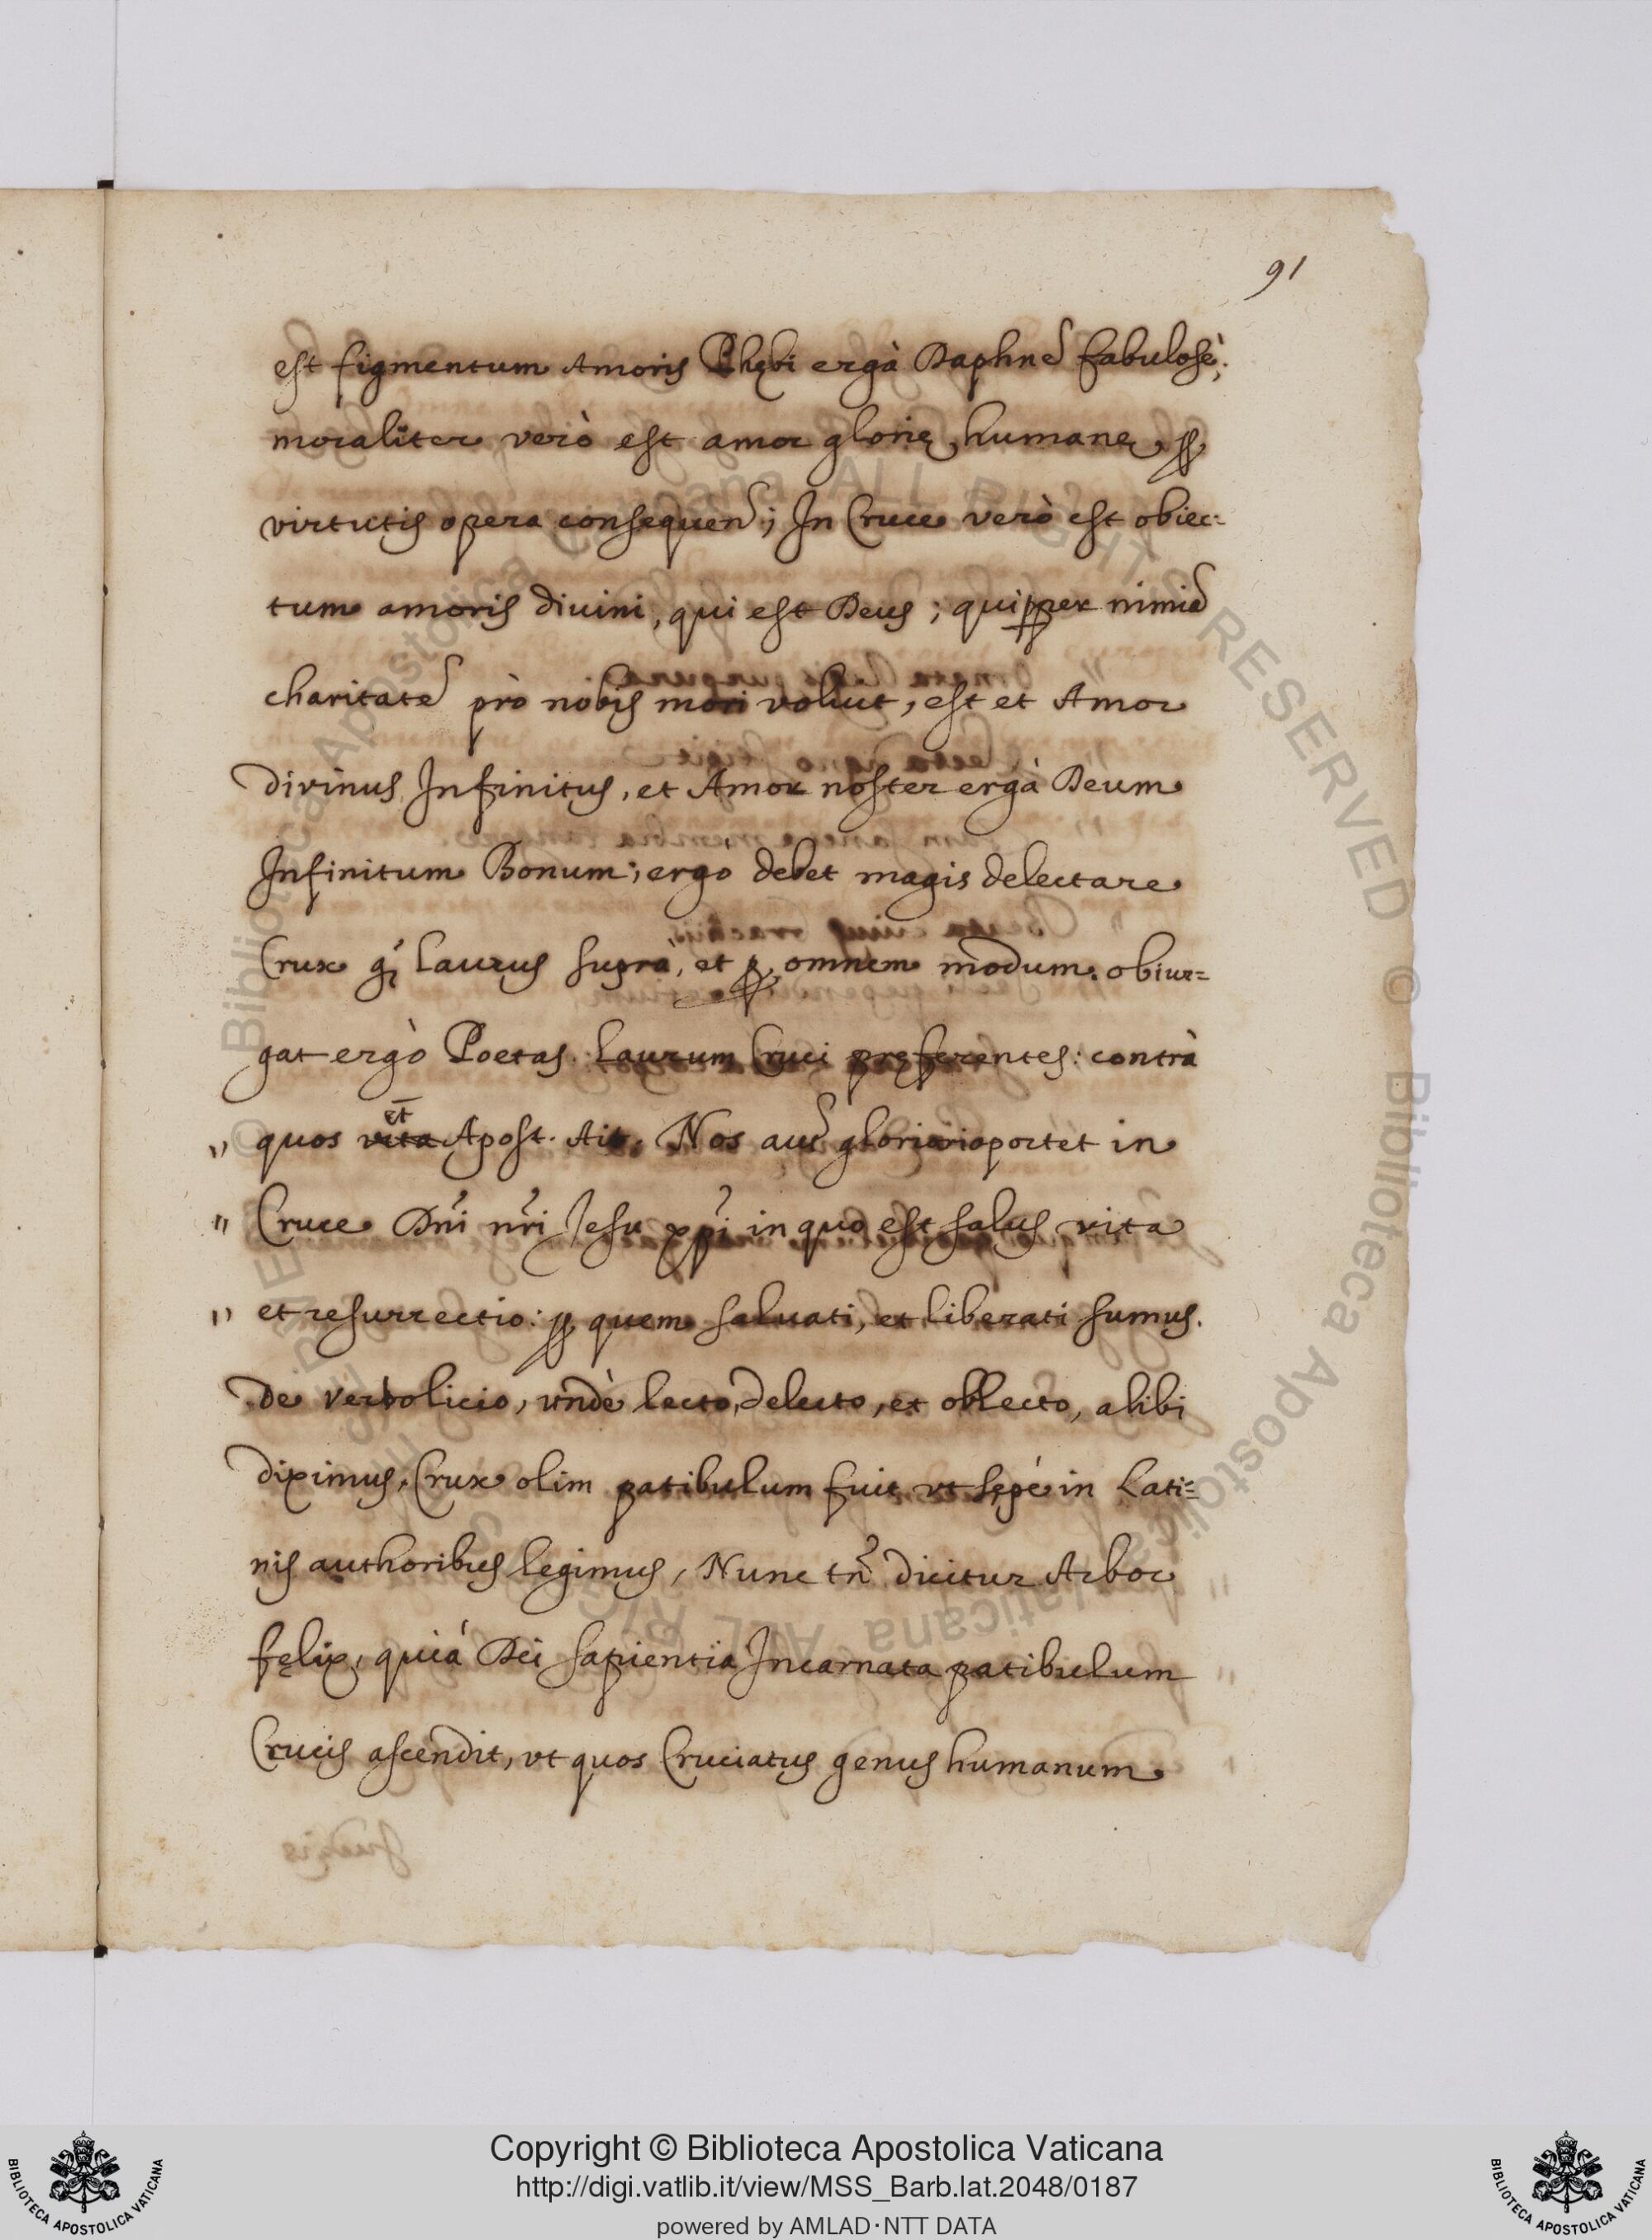 91
est figmentum Amoris Phębi ergà Daphnẽ fabulosè;
moraliter verò est amor glorię humanę ꝑ
virtutis opera consequen̄; In Cruce verò est obiec=
tum amoris diuini, qui est Deus; qui ꝓpter nimiã
charitatẽ prò nobis mori voluit, est et Amor
divinus Infinitus, et Amor noster ergà Deum
Infinitum Bonum; ergo debet magis delectare
Crux ꝗ̃ Laurus suprà, et ꝑ omnem modum. obiur=
gat ergò Poetas Laurum Cruci pręferentes: contrà
et
" quos vita Apost. Ait, Nos aut̃ gloriari oportet in
" Cruce Dñi nr̃i Jesu xp̃i in quo est salus vita
" et resurrectio: ꝑ quem saluati, et liberati sumus.
De verbo licio, vndè lecto, delecto, et oblecto, alibi
diximus, Crux olim patibulum fuit vt sępè in Lati=
nis authoribus legimus, Nunc tñ dicitur Arbor
fęlix, quià Dei sapientia Incarnata patibulum
Crucis ascendit, vt quos Cruciatus genus humanum
Copyright © Biblioteca Apostolica Vaticana
http://digi.vatlib.it/view/MSS_Barb.lat.2048/0187
powered by AMLAD·NTT DATA
BIBLIOTECA APOSTOLICA VATICANA
BIBLIOTECA APOSTOLICA VATICANA